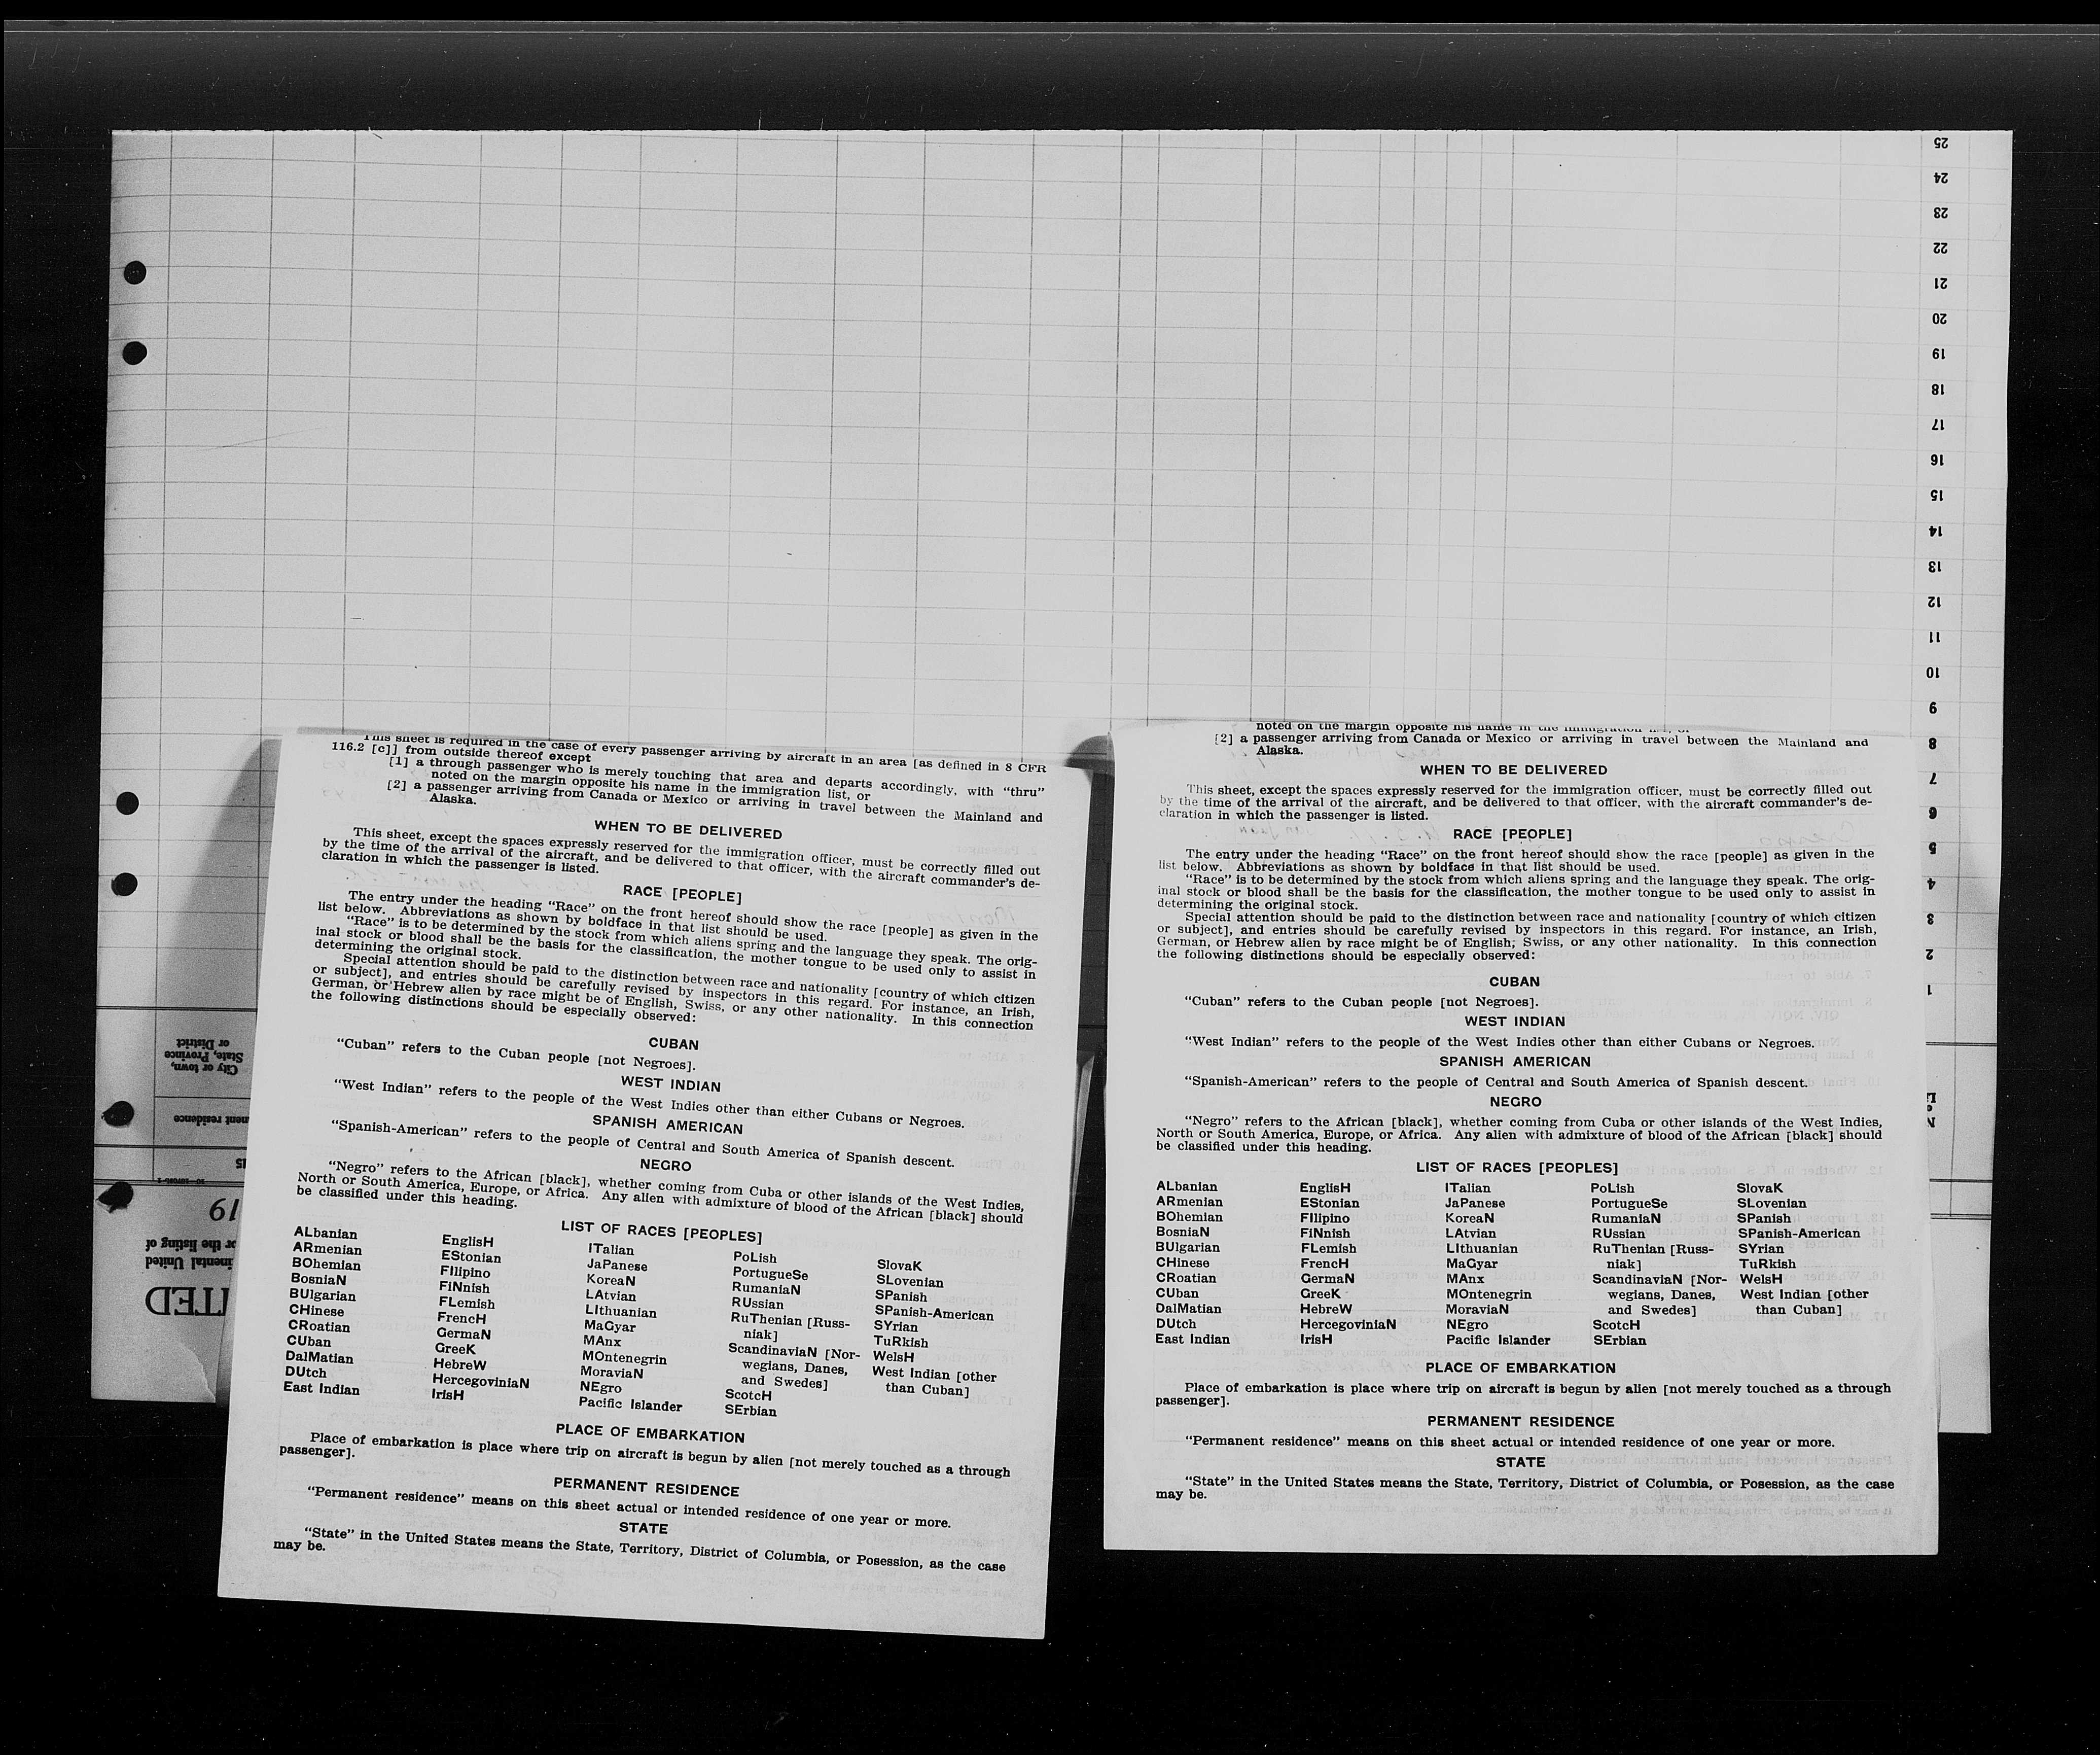 25
24
23
22
21
20
19
18
17
16
15
14
13
12
11
10
9
8
7
6
5
4
3
2
1
City or town,
State, Province
or District
residence
19
or the listing of
United
This sheet is required in the case of every passenger arriving by aircraft in an area [as defined in 8 CFR
116.2 [c]] from outside thereof except
[1] a through passenger who is merely touching that area and departs accordingly, with “thru”
noted on the margin opposite his name in the immigration list, or
[2] a passenger arriving from Canada or Mexico or arriving in travel between the Mainland and
Alaska.
WHEN TO BE DELIVERED
This sheet, except the spaces expressly reserved for the immigration officer, must be correctly filled out
by the time of the arrival of the aircraft, and be delivered to that officer, with the aircraft commander’s de-
claration in which the passenger is listed.
RACE [PEOPLE]
The entry under the heading “Race” on the front hereof should show the race [people] as given in the
list below. Abbreviations as shown by boldface in that list should be used.
“Race” is to be determined by the stock from which aliens spring and the language they speak. The orig-
inal stock or blood shall be the basis for the classification, the mother tongue to be used only to assist in
determining the original stock.
Special attention should be paid to the distinction between race and nationality [country of which citizen
or subject], and entries should be carefully revised by inspectors in this regard. For instance, an Irish,
German, or Hebrew alien by race might be of English, Swiss, or any other nationality. In this connection
the following distinctions should be especially observed:
CUBAN
“Cuban” refers to the Cuban people [not Negroes].
WEST INDIAN
“West Indian” refers to the people of the West Indies other than either Cubans or Negroes.
SPANISH AMERICAN
“Spanish-American” refers to the people of Central and South America of Spanish descent.
NEGRO
“Negro” refers to the African [black], whether coming from Cuba or other islands of the West Indies,
North or South America, Europe, or Africa. Any alien with admixture of blood of the African [black] should
be classified under this heading.
LIST OF RACES [PEOPLES]
ALbanian
ARmenian
BOhemian
BosniaN
BUlgarian
CHinese
CRoatian
CUban
DalMatian
DUtch
East Indian
EnglisH
EStonian
FIlipino
FiNnish
FLemish
FrencH
GermaN
GreeK
HebreW
HercegoviniaN
IrisH
ITalian
JaPanese
KoreaN
LAtvian
LIthuanian
MaGyar
MAnx
MOntenegrin
MoraviaN
NEgro
Pacific Islander
PoLish
PortugueSe
RumaniaN
RUssian
RuThenian [Russ-
niak]
ScandinaviaN [Nor-
wegians, Danes,
and Swedes]
ScotcH
SErbian
SlovaK
SLovenian
SPanish
SPanish-American
SYrian
TuRkish
WelsH
West Indian [other
than Cuban]
PLACE OF EMBARKATION
Place of embarkation is place where trip on aircraft is begun by alien [not merely touched as a through
passenger].
PERMANENT RESIDENCE
“Permanent residence” means on this sheet actual or intended residence of one year or more.
STATE
“State” in the United States means the State, Territory, District of Columbia, or Posession, as the case
may be.
noted on the margin opposite his name in the immigration list, or
[2] a passenger arriving from Canada or Mexico or arriving in travel between the Mainland and
Alaska.
WHEN TO BE DELIVERED
This sheet, except the spaces expressly reserved for the immigration officer, must be correctly filled out
by the time of the arrival of the aircraft, and be delivered to that officer, with the aircraft commander’s de-
claration in which the passenger is listed.
RACE [PEOPLE]
The entry under the heading “Race” on the front hereof should show the race [people] as given in the
list below. Abbreviations as shown by boldface in that list should be used.
“Race” is to be determined by the stock from which aliens spring and the language they speak. The orig-
inal stock or blood shall be the basis for the classification, the mother tongue to be used only to assist in
determining the original stock.
Special attention should be paid to the distinction between race and nationality [country of which citizen
or subject], and entries should be carefully revised by inspectors in this regard. For instance, an Irish,
German, or Hebrew alien by race might be of English; Swiss, or any other nationality. In this connection
the following distinctions should be especially observed:
CUBAN
“Cuban” refers to the Cuban people [not Negroes].
WEST INDIAN
“West Indian” refers to the people of the West Indies other than either Cubans or Negroes.
SPANISH AMERICAN
“Spanish-American” refers to the people of Central and South America of Spanish descent.
NEGRO
“Negro” refers to the African [black], whether coming from Cuba or other islands of the West Indies,
North or South America, Europe, or Africa. Any alien with admixture of blood of the African [black] should
be classified under this heading.
LIST OF RACES [PEOPLES]
ALbanian
ARmenian
BOhemian
BosniaN
BUlgarian
CHinese
CRoatian
CUban
DalMatian
DUtch
East Indian
EnglisH
EStonian
FIlipino
FiNnish
FLemish
FrencH
GermaN
GreeK
HebreW
HercegoviniaN
IrisH
ITalian
JaPanese
KoreaN
LAtvian
LIthuanian
MaGyar
MAnx
MOntenegrin
MoraviaN
NEgro
Pacific Islander
PoLish
PortugueSe
RumaniaN
RUssian
RuThenian [Russ-
niak]
ScandinaviaN [Nor-
wegians, Danes,
and Swedes]
ScotcH
SErbian
SlovaK
SLovenian
SPanish
SPanish-American
SYrian
TuRkish
WelsH
West Indian [other
than Cuban]
PLACE OF EMBARKATION
Place of embarkation is place where trip on aircraft is begun by alien [not merely touched as a through
passenger].
PERMANENT RESIDENCE
“Permanent residence” means on this sheet actual or intended residence of one year or more.
STATE
“State” in the United States means the State, Territory, District of Columbia, or Posession, as the case
may be.